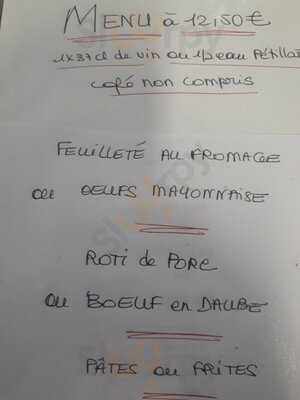 MENU à 12,50€
1x37cl de vin ou 1/2 eau Pétilla
café non compris
FEUILLETÉ AU FROMAGE
ou OEUFS MAYONNAISE
ROTI de PORC
ou BOEUF en DAUBE
PÂTES ou FRITES